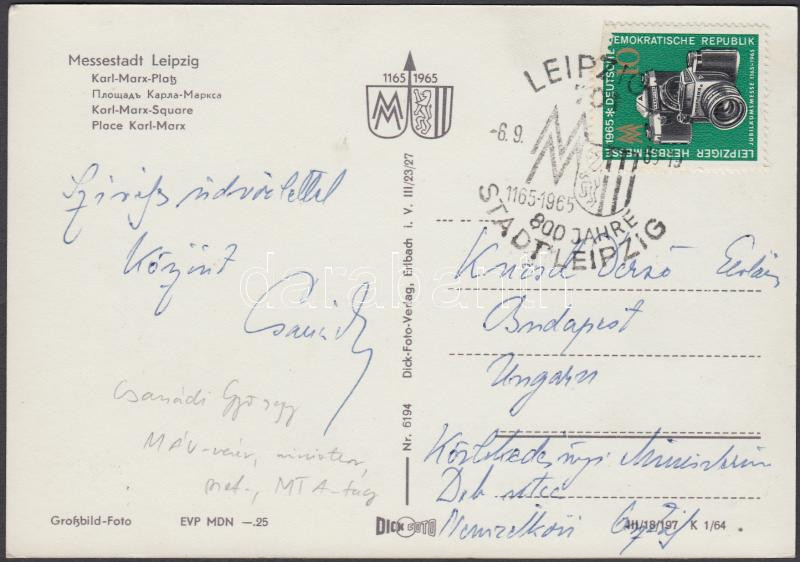 Messestadt Leipzig
Karl-Marx-Platz
Площадь Карла-Маркса
Karl-Marx-Square
Place Karl-Marx
1165 1965
M
LEIPZIG
-6.9.
1165-1965
800 JAHRE
STADT LEIPZIG
DEUTSCHE DEMOKRATISCHE REPUBLIK
10
JUBILÄUMSMESSE 1165-1965
LEIPZIGER HERBSTMESSE 1965
Szívélyes üdvözlettel
köszönt
Csanádi
Csanádi György
MÁV-vezér, miniszter,
MTA-tag
Dezső
Budapest
Ungarn
Közlekedésügyi Ministerium
Deb utca
Nemzetközi
Nr. 6194 Dick-Foto-Verlag, Erlbach i. V. III/23/27
darabanth
Großbild-Foto EVP MDN —.25
DICK FOTO
III/18/197 K 1/64